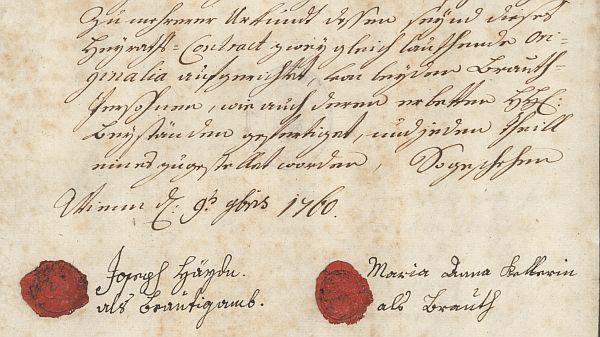 Zu mehrerer Urkundt dessen seynd dieses
Heyraths-Contract zwey gleich lauthende Ori-
ginalia aufgerichtet, von beyden Brauth-
Persohnen, wie auch deren erbettenen HH:
Beyständen gefertiget, und jeden Theill
eines zugestellet worden, So geschehen
Wienn d: 9t 9bris 1760.
Joseph Haÿdn.
als Breutigamb.
Maria Anna Kellerin
als Brauth